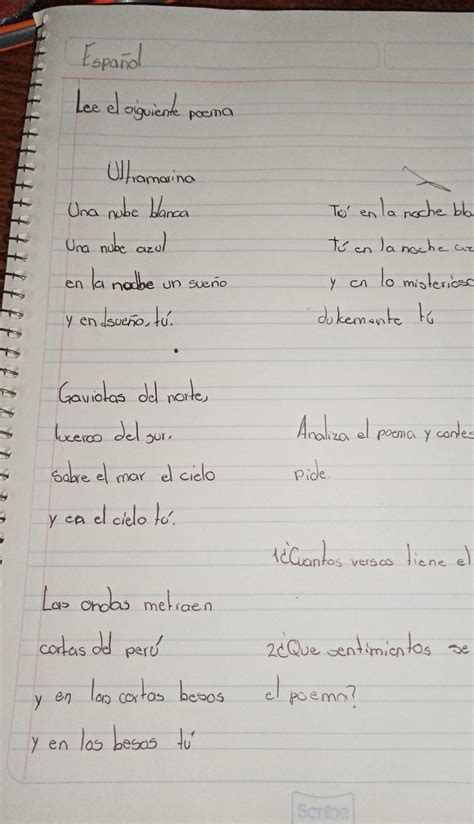 Español
Lee el siguiente poema
Ultramarina
Una nube blanca
Una nube azul
en la nodbe un sueño
y en dsueño, tú.
Gaviotas del norte,
luceros del sur.
sobre el mar el cielo
y en el cielo tú.
Las ondas metraen
cartas del perú
y en las cartas besos
y en los besos tú
Tú en la noche bla
tú en la noche az
y en lo misterioso
dulcemente tú
Analiza el poema y contes
pide.
1¿Cuantos versos tiene el
2¿Que sentimientos se
el poema?
Scribe